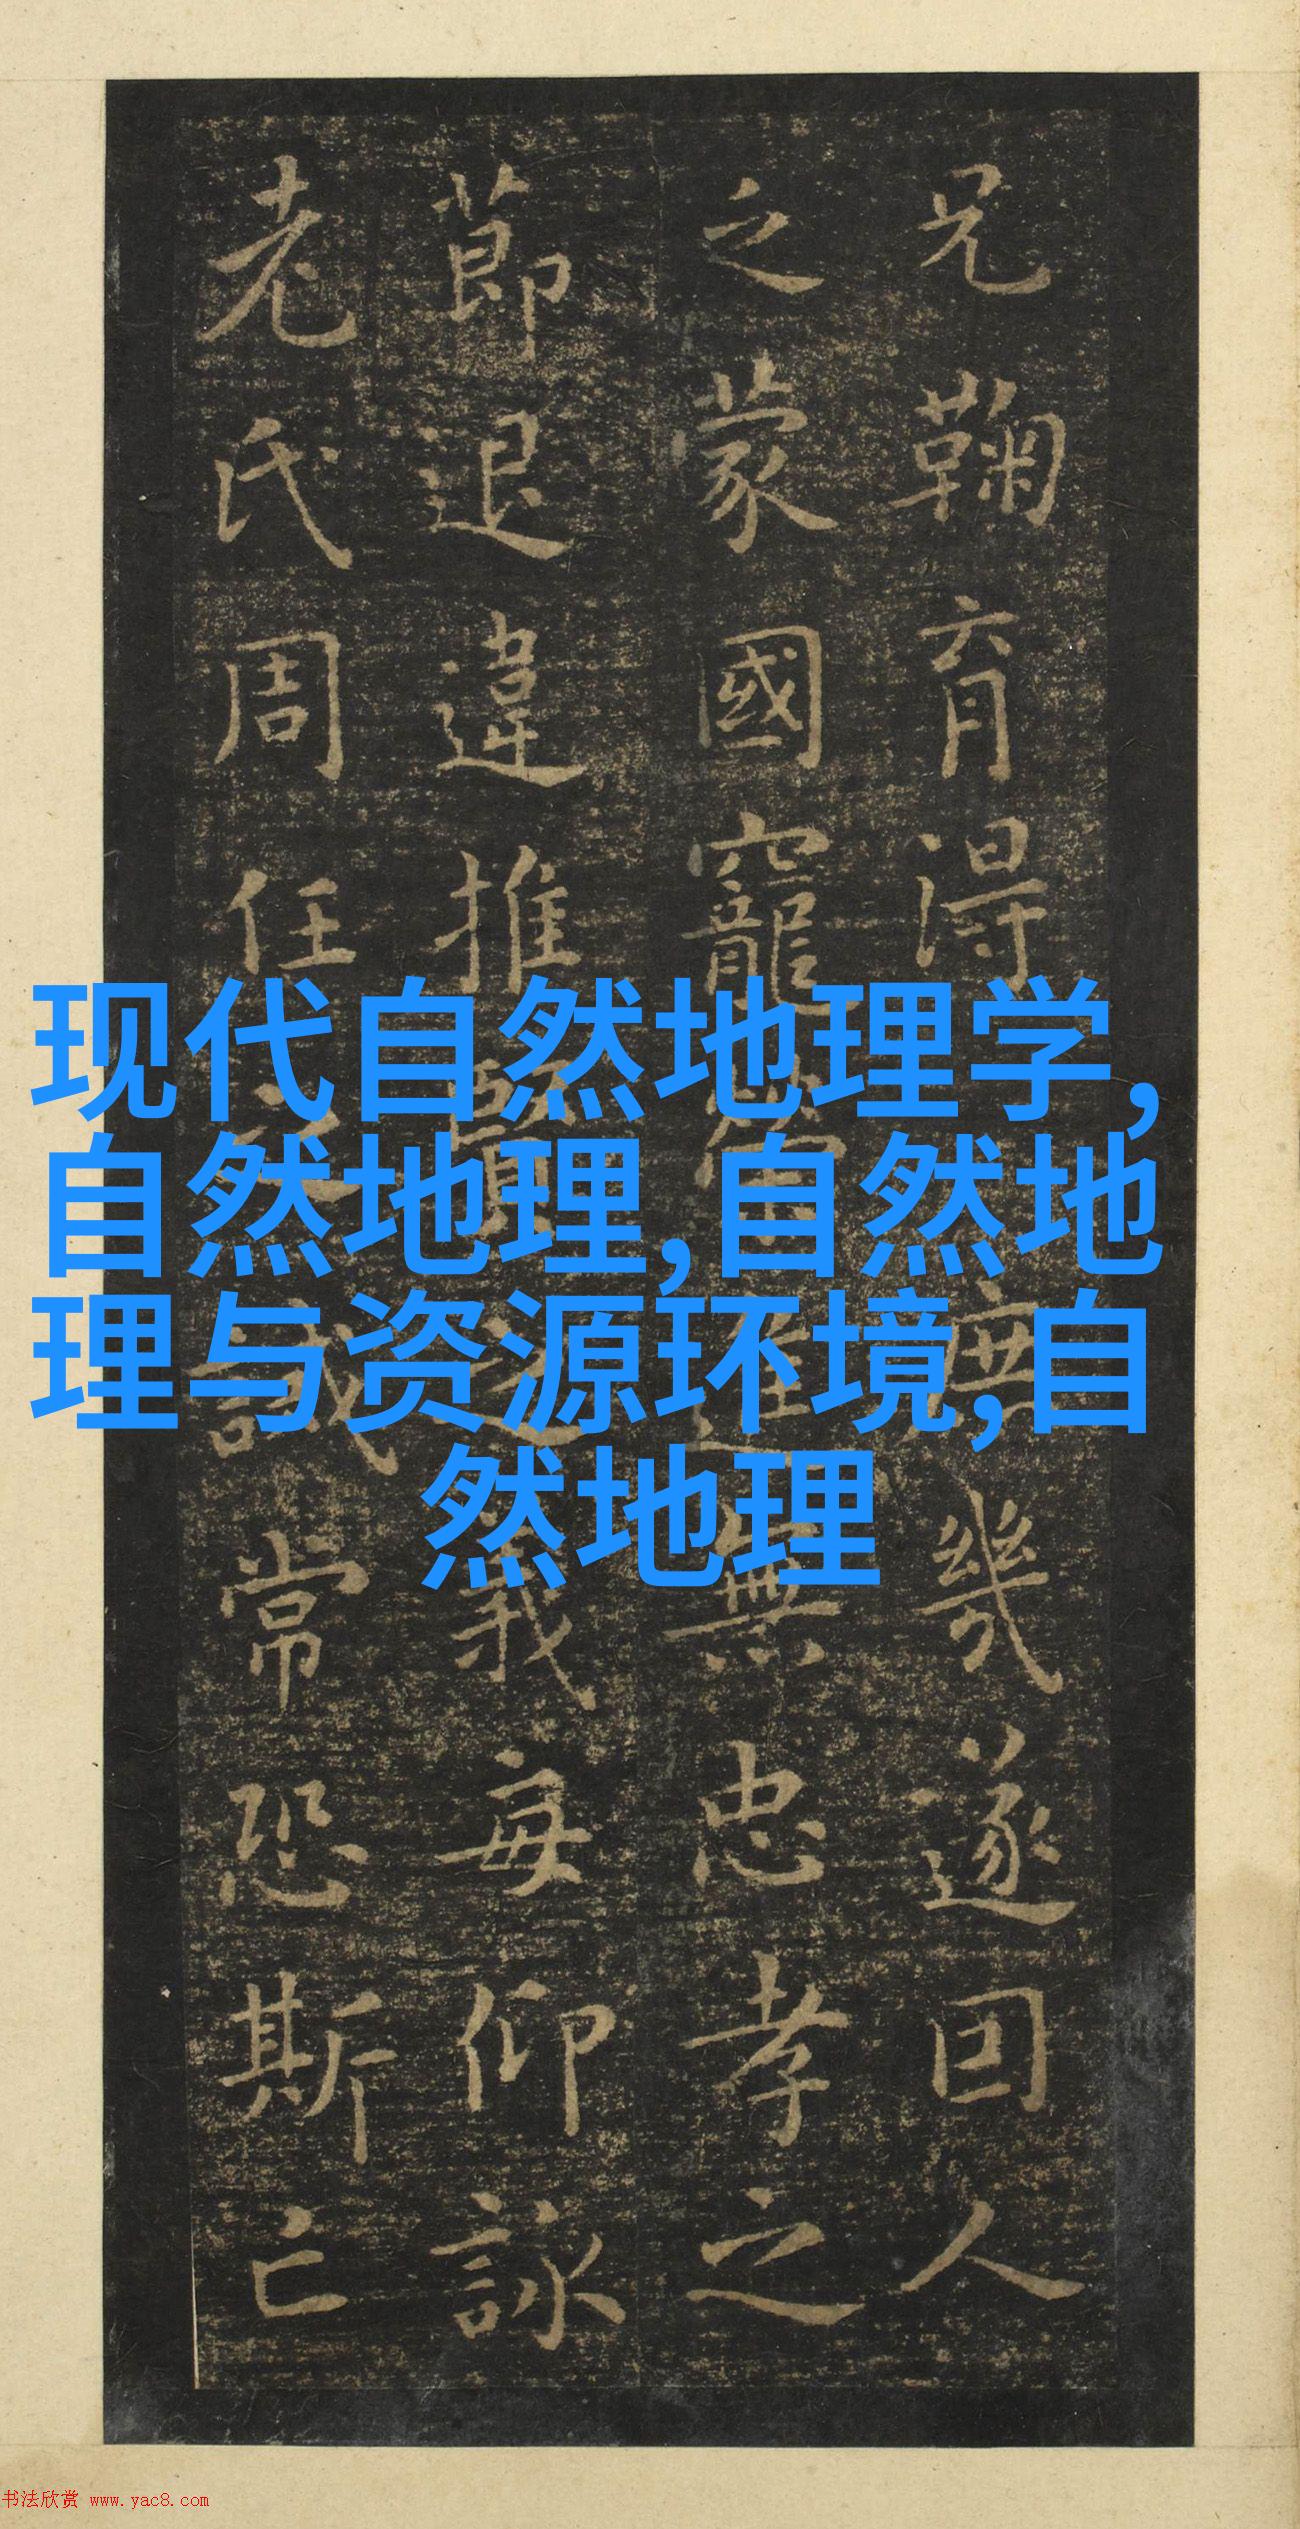 兄鞠育得庶幾遂因人
之蒙國寵榮進無忠孝之
莭退違推賢之義每仰詠
老氏周任之誡常恐斯亡
现代自然地理学,
自然地理,自然地
理与资源环境,自
然地理
书法欣赏 www.yac8.com